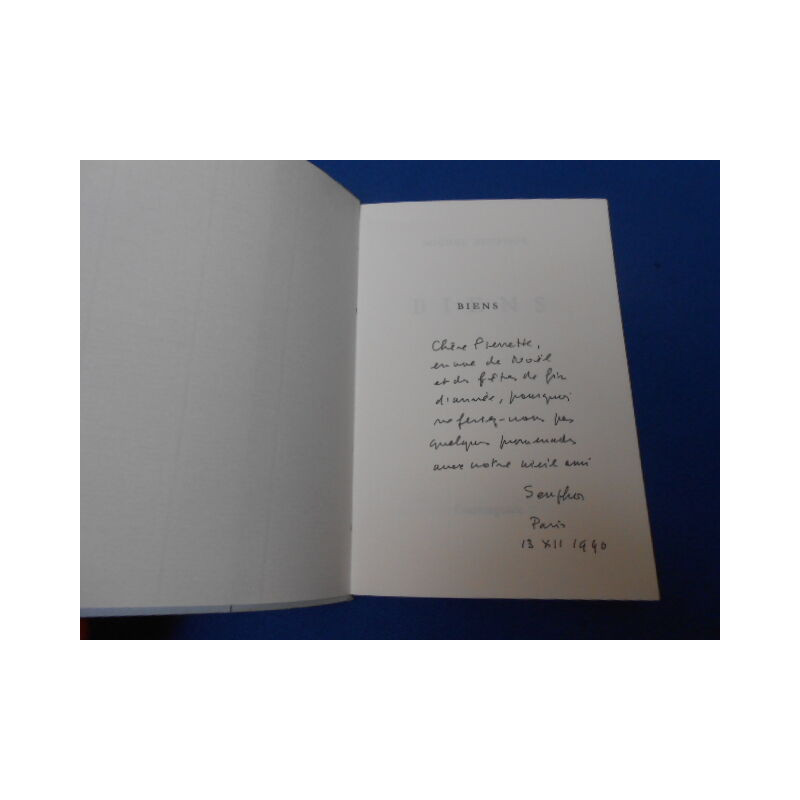 BIENS
Chère Pierrette,
en vue de Noël
et des fêtes de fin
d'année, pourquoi
ne feriez-vous pas
quelques promenades
avec notre vieil ami
Senghor
Paris
13 XII 1990